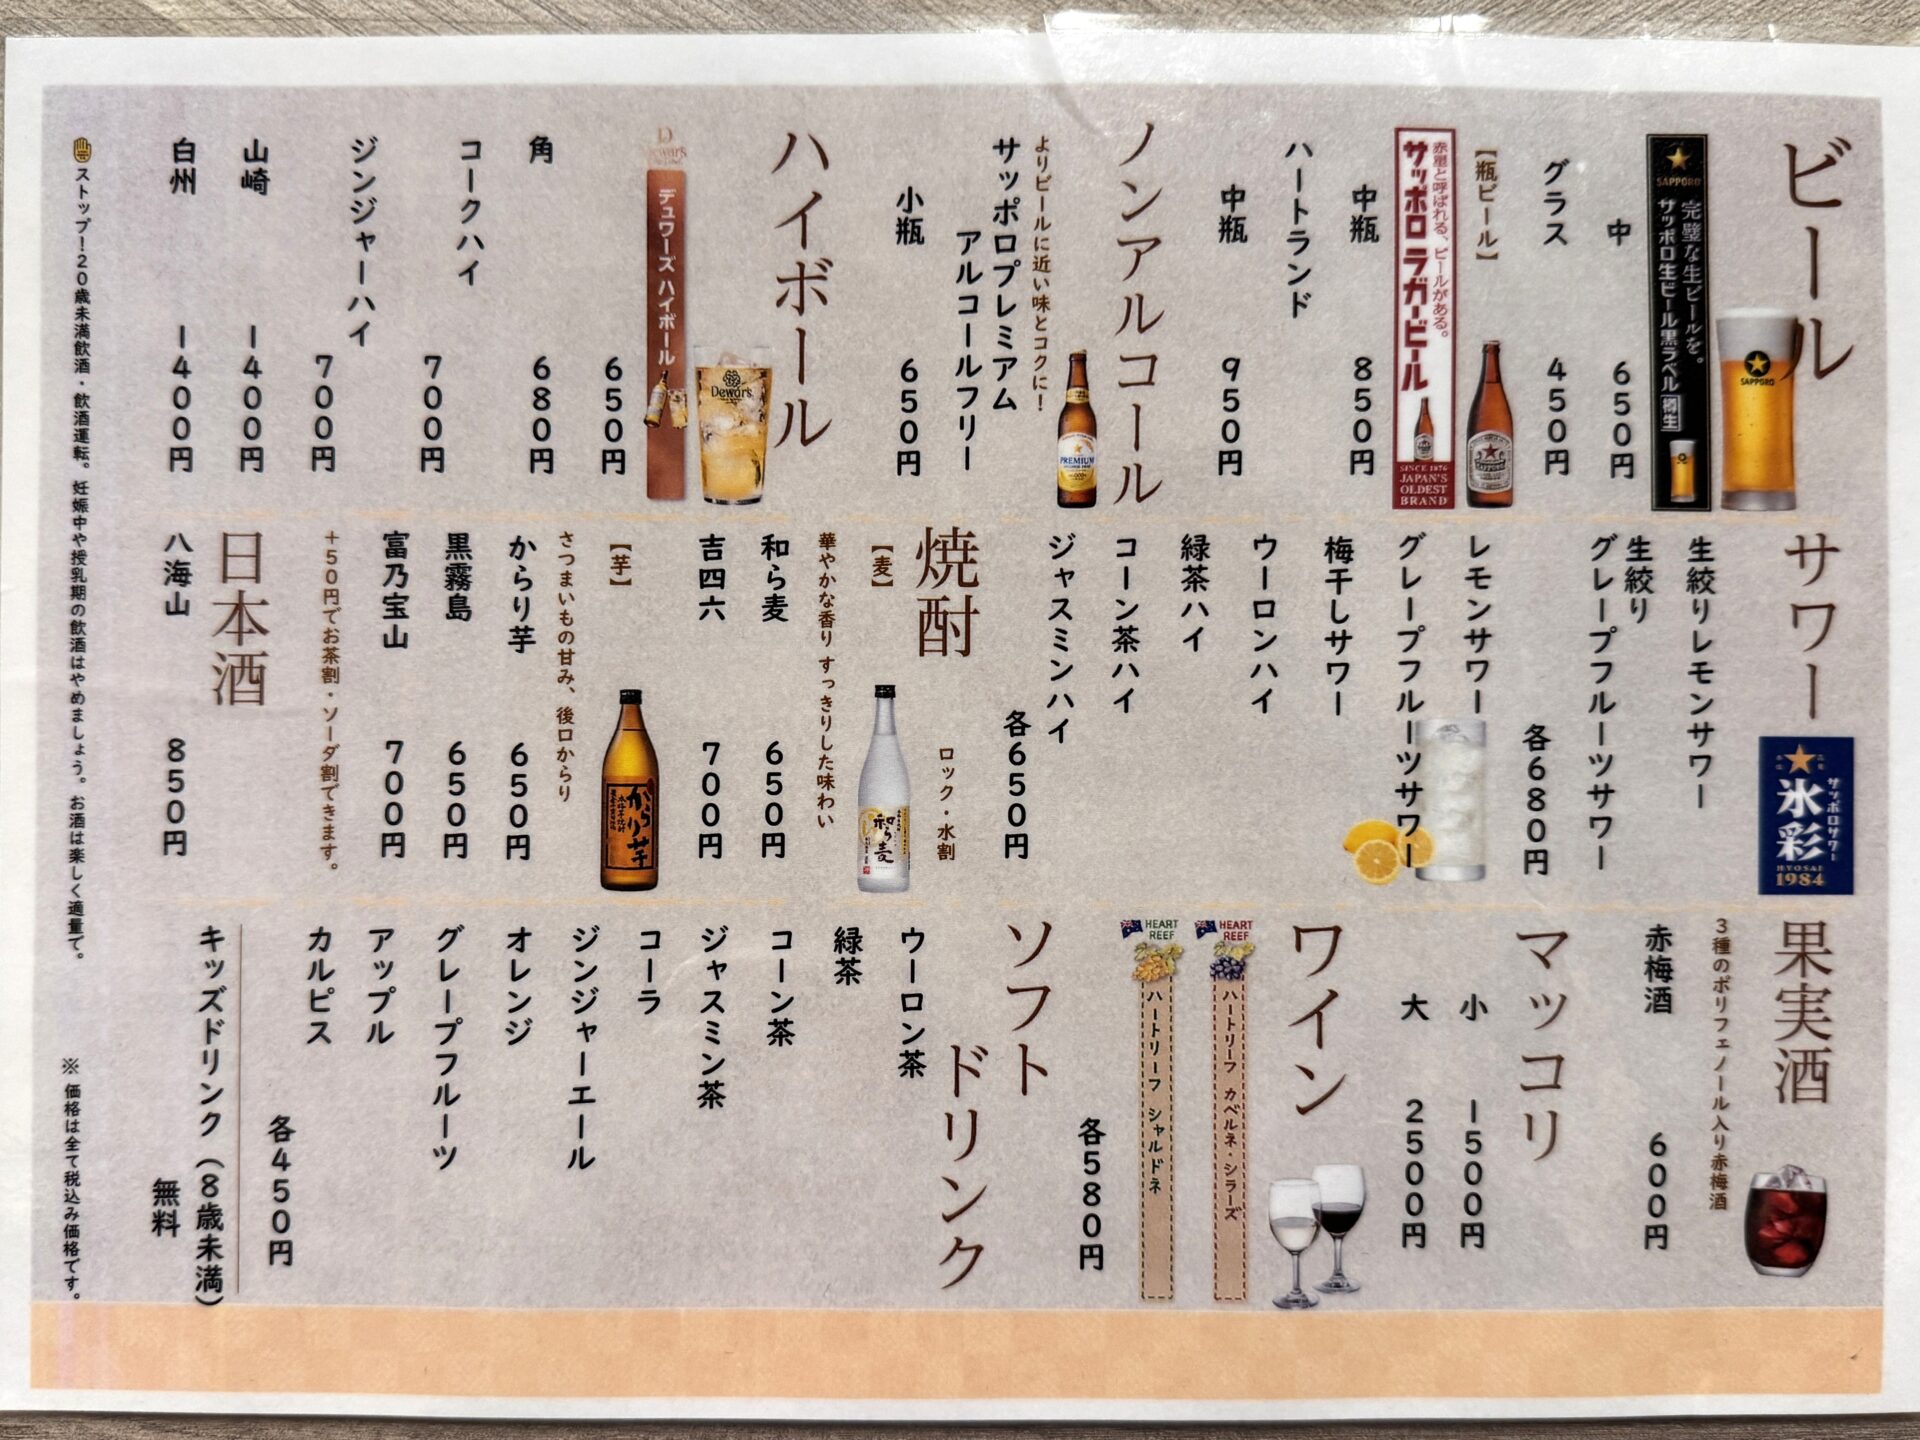 ビール
SAPPORO
完璧な生ビールを。
サッポロ生ビール黒ラベル 樽生
SAPPORO
中 650円
グラス 450円
【瓶ビール】
赤星と呼ばれる、ビールがある。
サッポロ ラガービール
SINCE 1876
JAPAN'S
OLDEST
BRAND
中瓶 850円
ハートランド
中瓶 950円
ノンアルコール
よりビールに近い味とコクに!
PREMIUM
サッポロプレミアム
アルコールフリー
小瓶 650円
ハイボール
Dewar's
Dewar's
デュワーズ ハイボール
650円
角 680円
コークハイ
700円
ジンジャーハイ
700円
山崎 1400円
白州 1400円
サワー
サッポロサワー
氷彩
HYOSAI
1984
生絞りレモンサワー
生絞り
グレープフルーツサワー
各680円
レモンサワー
グレープフルーツサワー
梅干しサワー
ウーロンハイ
緑茶ハイ
コーン茶ハイ
ジャスミンハイ
各650円
焼酎
ロック・水割
【麦】
和ら麦
華やかな香り すっきりした味わい
和ら麦 650円
吉四六 700円
【芋】
からり芋
さつまいもの甘み、後口からり
からり芋 650円
黒霧島 650円
富乃宝山 700円
+50円でお茶割・ソーダ割できます。
日本酒
八海山 850円
果実酒
3種のポリフェノール入り赤梅酒
赤梅酒 600円
マッコリ
小 1500円
大 2500円
ワイン
HEART
REEF
ハートリーフ カベルネ・シラーズ
HEART
REEF
ハートリーフ シャルドネ
各580円
ソフト
ドリンク
ウーロン茶
緑茶
コーン茶
ジャスミン茶
コーラ
ジンジャーエール
オレンジ
グレープフルーツ
アップル
カルピス
各450円
キッズドリンク(8歳未満)
無料
ストップ!20歳未満飲酒・飲酒運転。妊娠中や授乳期の飲酒はやめましょう。お酒は楽しく適量で。
※ 価格は全て税込み価格です。